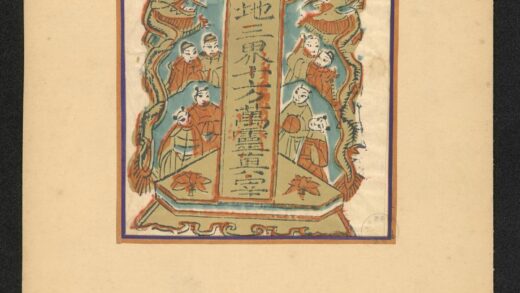 地三界十方萬靈真宰